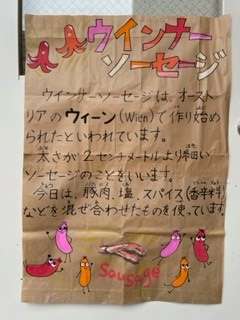 ウインナー
ソーセージ
ウインナーソーセージは、オースト
リアのウィーン(Wien)で作り始め
られたといわれています。
太さが2センチメートルより細い
ソーセージのことをいいます。
今日は、豚肉、塩、スパイス(香辛料)
などを混ぜ合わせたものを使っています
Sausage